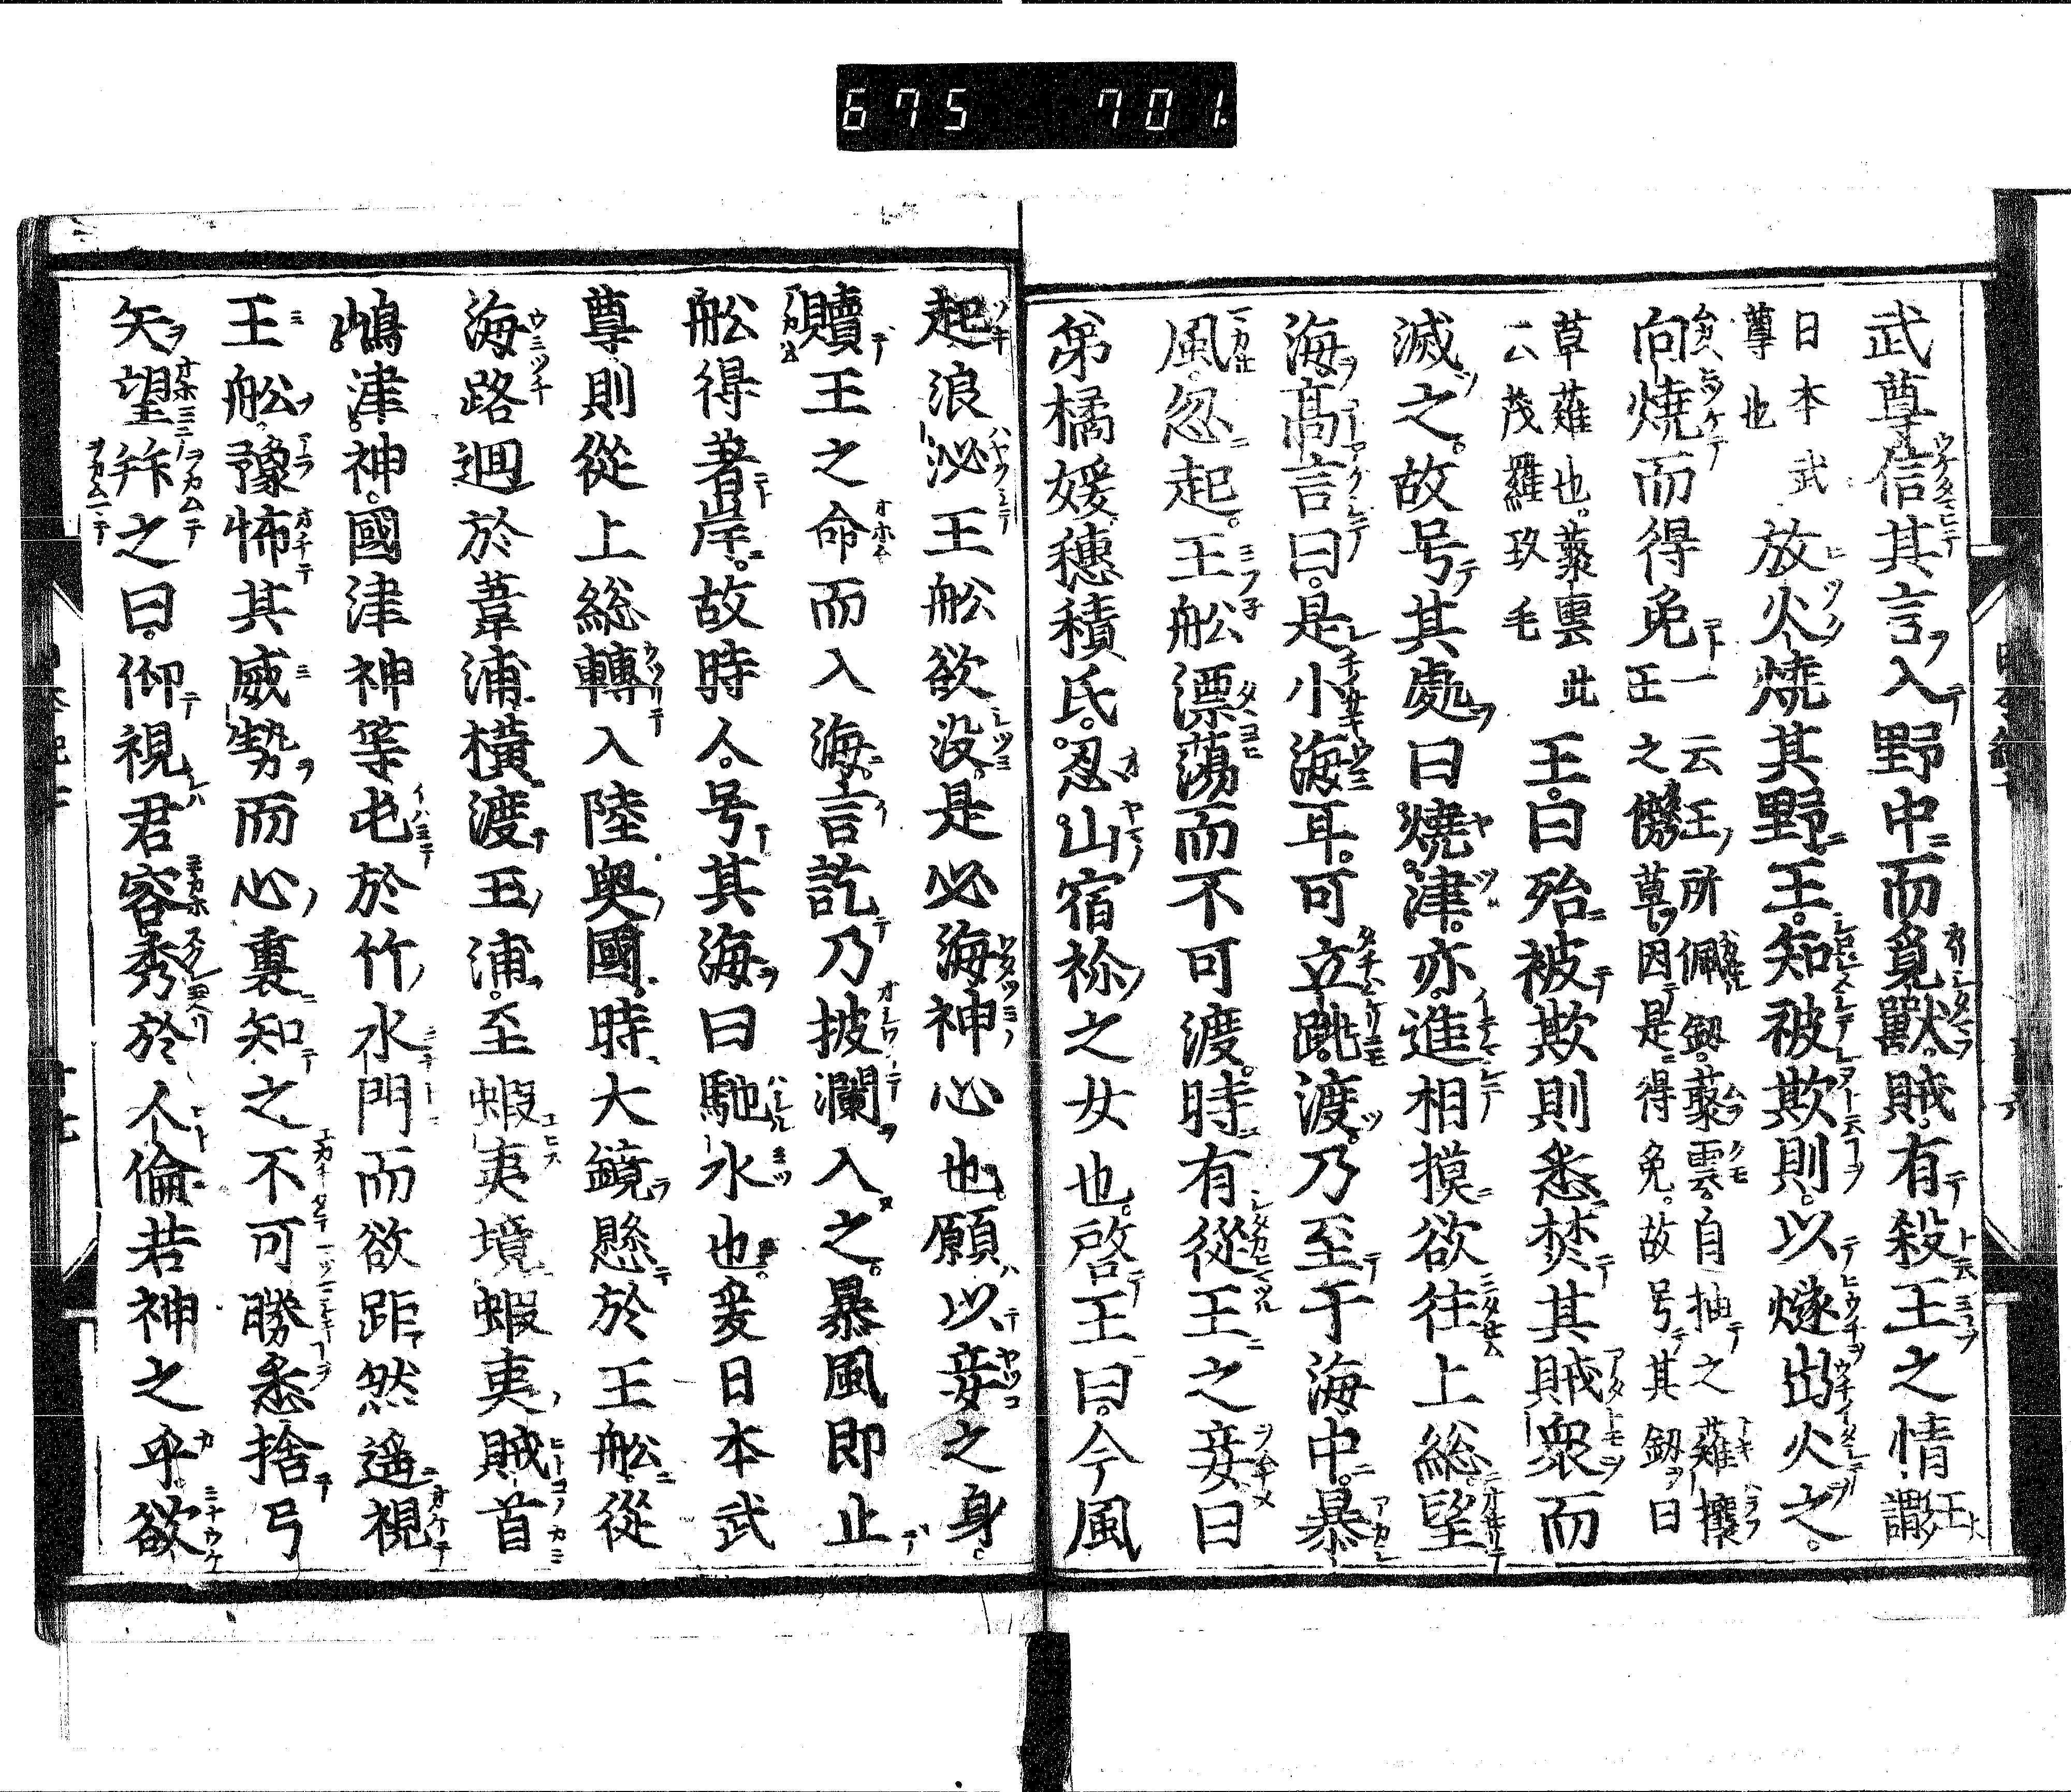 675 701
武尊信其言入野中而覓獸賊有殺王之情王謂
日本武尊也放火燒其野王知被欺則以燧出火之
向燒而得免一云王所佩劔藂雲自抽之薙攘王之傍草因是得免故号其劔曰
草薙也藂雲此云茂羅玖毛王曰殆被欺則悉焚其賊衆而
滅之故号其處曰燒津亦進相摸欲往上総望
海高言曰是小海耳可立跳渡乃至于海中暴
風忽起王舩漂蕩而不可渡時有從王之妾曰
弟橘媛穗積氏忍山宿祢之女也啓王曰今風
起浪泌王舩欲没是必海神心也願以妾之身
贖王之命而入海言訖乃披瀾入之暴風即止
舩得著岸故時人号其海曰馳水也爰日本武
尊則從上総轉入陸奥國時大鏡懸於王舩從
海路廻於葦浦横渡玉浦至蝦夷境蝦夷賊首
嶋津神國津神等屯於竹水門而欲距然遥視
王舩豫怖其威勢而心裏知之不可勝悉捨弓
矢望拜之曰仰視君容秀於人倫若神之乎欲